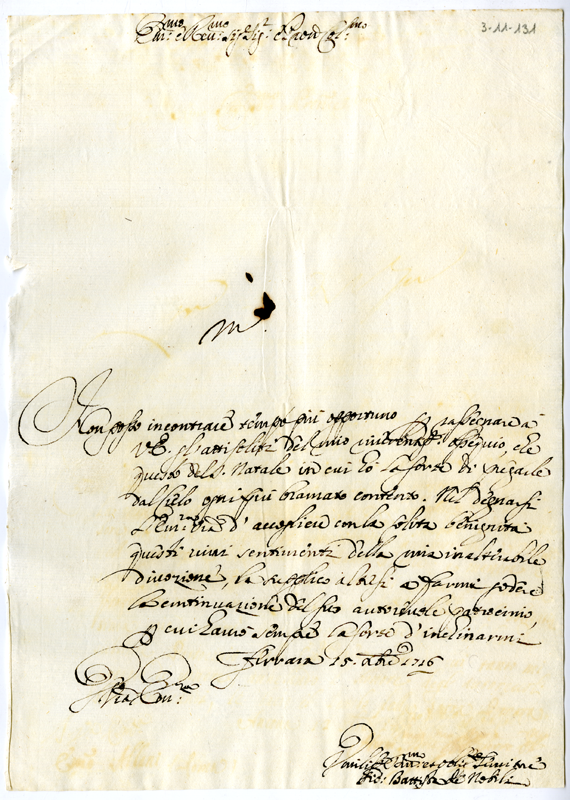 3-11-131
Em:mo e Rev:mo Sig:r Sig:r e Pron Col:mo
Non posso incontrare tempo più opportuno p rassegnare à
V.E. gl'atti soliti del mio riverentis:mo ossequio, che
questo del S. Natale in cui hò la sorte di pregarle
dal Cielo ogni più bramato contento. Nel degnarsi
L'Em:za V:ra d'accogliere con la solita benignità
questi vivi sentimenti della mia inalterabile
divozione, la supplico altresì a farmi godere
la continuazione del suo autorevole patrocinio,
p cui havrò sempre la sorte d'inclinarmi
Ferrara 15. Xbre 1716
Umiliss:mo Dev:mo et oblig:mo Servitore
Gio: Battista de Nobili